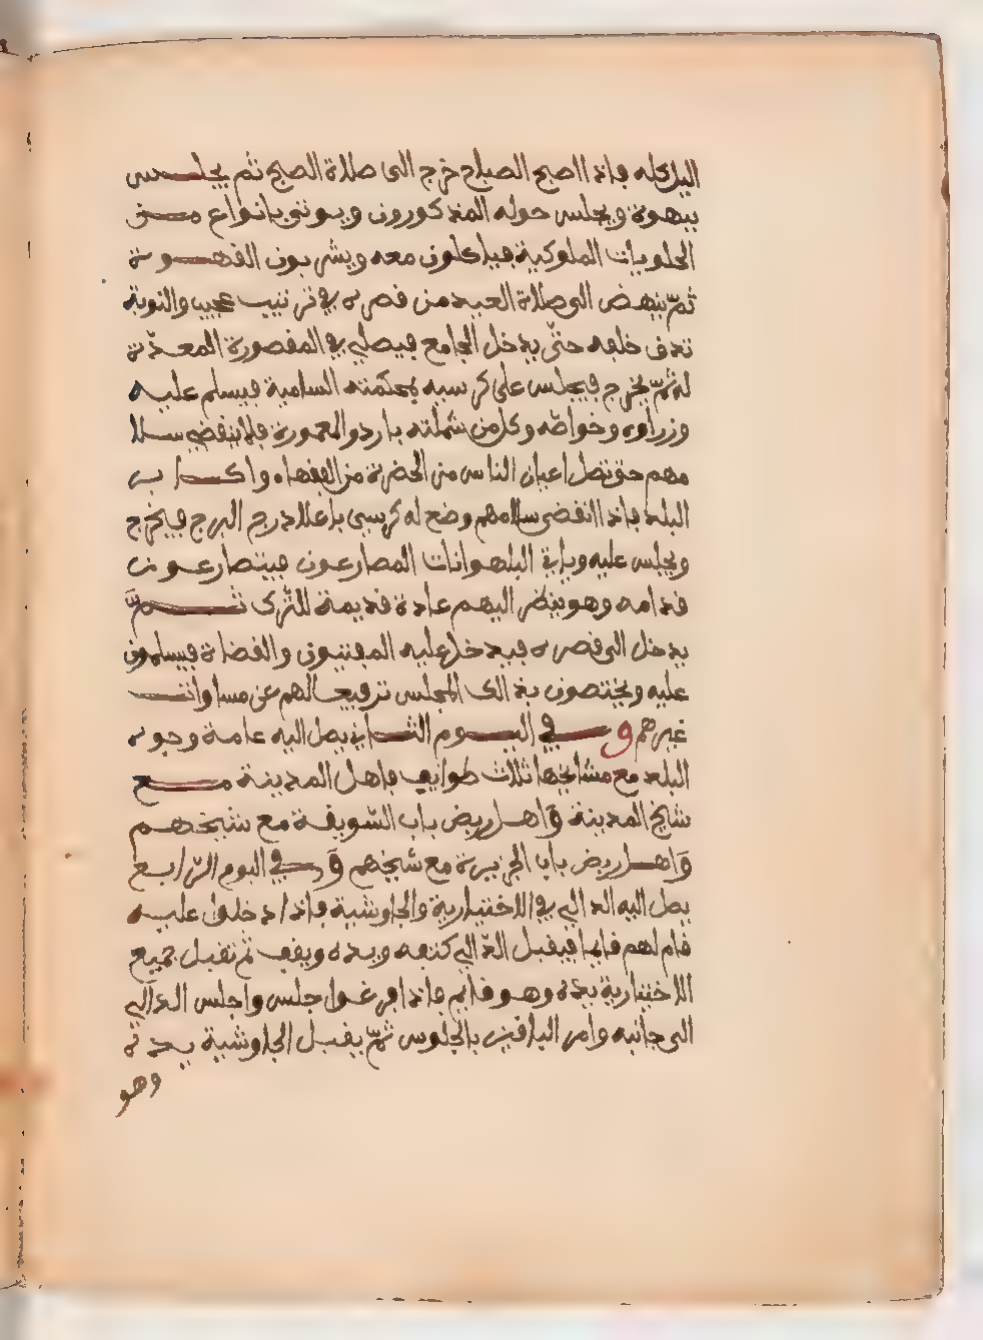 اليل كله فاذا اصبح الصباح خرج الى صلاة الصبح ثم يجلس
ببهوه ويجلس حوله المذكورون ويوتى بانواع من
الحلويات الملوكية فياكلون معه ويشربون القهوة
ثم ينهض الى صلاة العيد من قصره في ترتيب عجيب والنوبة
تدق خلفه حتى يدخل الجامع فيصلي في المقصورة المعدة
له ثم يخرج فيجلس على كرسيه بمحكمته السامية فيسلم عليه
وزراوه وخواصه وكل من شملته باردو المعمورة فلا ينقضي سلا
مهم حتى تصل اعيان الناس من الحضرة من الفقهاء واكابر
البلد فاذا انقضى سلامهم وضع له كرسي باعلا درج البرج فيخرج
ويجلس عليه وياتي البلهوانات المصارعون فيتصارعون
قدامه وهو ينظر اليهم عادة قديمة للترك ثم
يدخل الى قصره فيدخل عليه المفتيون والقضاة فيسلمون
عليه ويختصون بذالك المجلس ترفيعا لهم عن مساوات
غيرهم وفي اليوم الثاني يصل اليه عامة وجوه
البلد مع مشايخها ثلاث طوايف فاهل المدينة مع
شايخ المدينة واهل ربض باب السويقة مع شيخهم
واهل ربض باب الجزيرة مع شيخهم وفي اليوم الرابع
يصل اليه الدالي في الاختيارية والجاوشية فاذا دخلوا عليه
قام لهم قايما فيقبل الدالي كتفه ويده ويقف ثم تقبل جميع
الاختيارية يده وهو قايم فاذا فرغوا جلس واجلس الدالي
الى جانبه وامر الباقين بالجلوس ثم يقبل الجاوشية يده
وهو